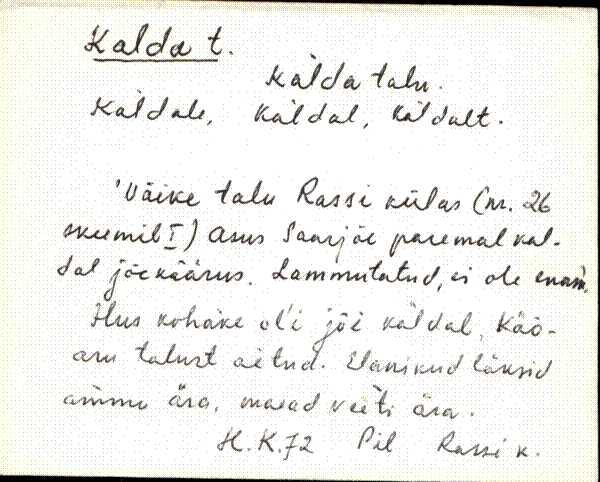 Kalda t.
Kàlda talu.
Kàldale, Kàldal, Kàldalt.
'Väike talu Rassi külas (nr. 26
skeemil I) asus Saarjõe paremal kal-
dal jõekäärus. Lammutatud, ei ole enam.
Ilus kohake ol'i jõe kàldal, Kää-
aru talust aetud. Elanikud läksid
ammu ära, maead veeti ära.
H.K.72 Pil Rassi k.